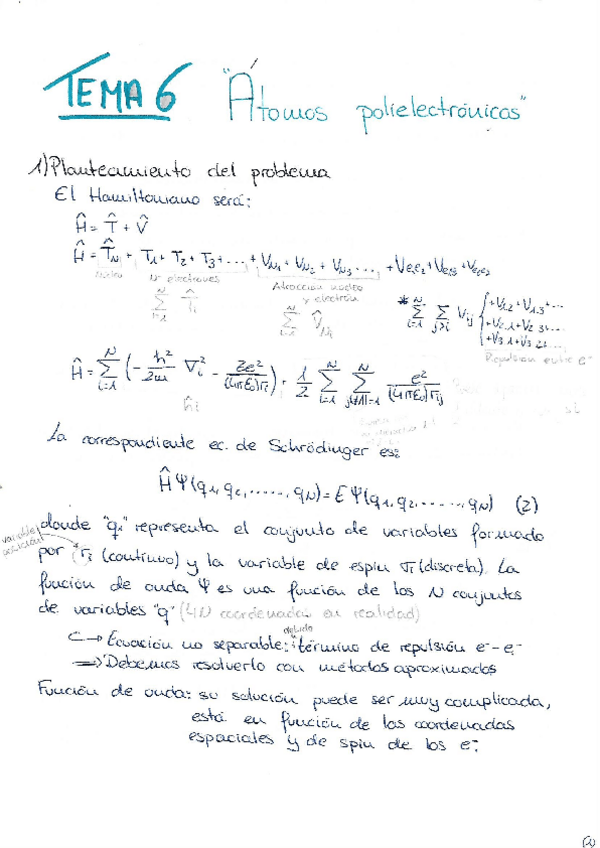 TEMA 6 "Átomos polielectrónicos"
1) Planteamiento del problema
El Hamiltoniano será:
Ĥ = T̂ + V̂
Ĥ = T̂N + T1 + T2 + T3 + ... + VN1 + VN2 + VN3 ... + Ve1e2 + Ve1e3 + Ve2e3
Núcleo Nº electrones Atracción núcleo y electrón
∑ᵢ₌₁ᴺ T̂i ∑ᵢ₌₁ᴺ V̂Ni * ∑ᵢ₌₁ᴺ ∑ⱼ>ᵢ Vij { +V1,2 + V1,3 + ...
Repulsión entre e⁻
Ĥ = ∑ᵢ₌₁ᴺ (-ħ²/2m ∇i² - Ze²/(4πε0)ri) + 1/2 ∑ᵢ₌₁ᴺ ∑ⱼ≠ᵢ₌₁ᴺ e²/(4πε0)rij
ĥi
La correspondiente ec. de Schrödinger es:
ĤΨ(q1, q2, ......, qN) = EΨ(q1, q2, ......, qN) (2)
donde "qi" representa el conjunto de variables formado
variable
por ri (continuo) y la variable de espín σi (discreta). La
función de onda Ψ es una función de los N conjuntos
de variables "q" (4N coordenadas en realidad)
↪ Ecuación no separable: debido término de repulsión e⁻-e⁻
⇒ Debemos resolverlo con métodos aproximados
Función de onda: su solución puede ser muy complicada,
está en función de las coordenadas
espaciales y de spin de los e⁻.